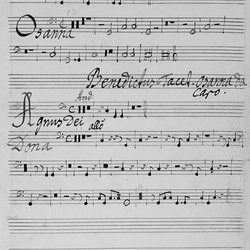 Osanna
Benedictus Tacet. Osanna da
Capo.
And.
Agnus Dei
allò
Dona